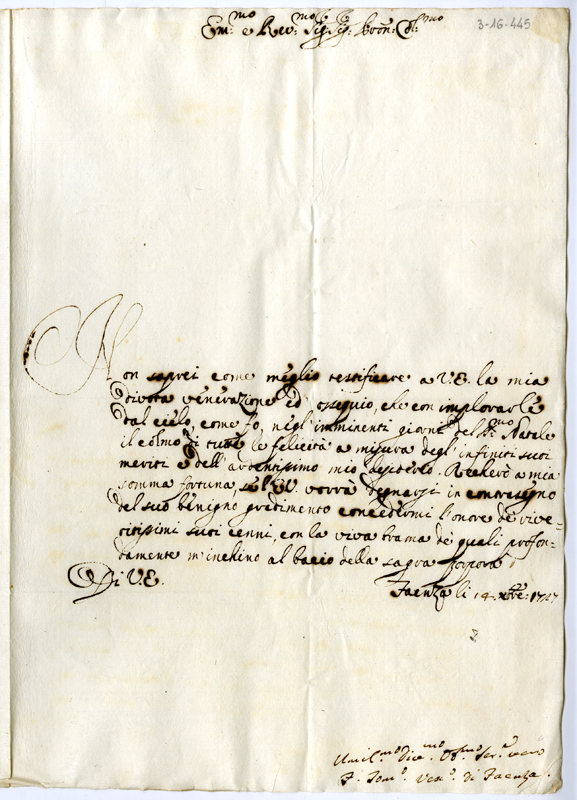 3-16-445
Em:mo e Rev:mo Sig:r Sig:r Pron: Col:mo
Non saprei come meglio testificare a V.E. la mia
divota venerazione ed ossequio, che con implorarle
dal cielo, come fo, negl'imminenti giorni del S:mo Natale
il colmo di tutte le felicità a misura degl'infiniti suoi
meriti e dell'ardentissimo mio desiderio. Recherò a mia
somma fortuna, se l'E.V. vorrà degnarsi in contrasegno
del suo benigno gradimento concedermi l'onore de rive-
ritissimi suoi cenni, con la viva brama de quali profon-
damente m'inchino al bacio della sagra porpora
Di V.E.
Faenza li 14 .mbre: 1727
Umil:mo Div:mo Obb:mo Ser:e vero
F. Tom:o Vesc:o di Faenza.